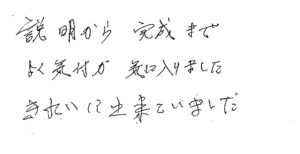 説明から 完成まで
よく気付が 気に入りました
きれいに出来ていました